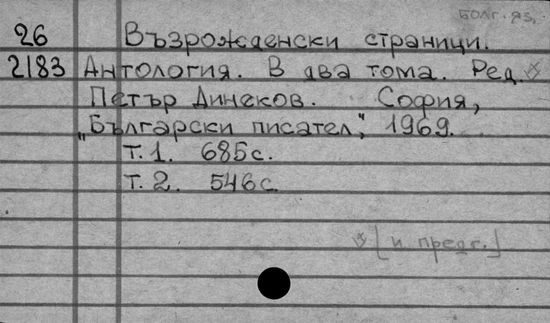 болг. яз.
26 Възрожденски страници.
2183 Антология. В два тома. Ред.
Петър Динеков. София,
„Български писател", 1969.
т. 1. 685 с.
т. 2. 546 с.
[и предг.]